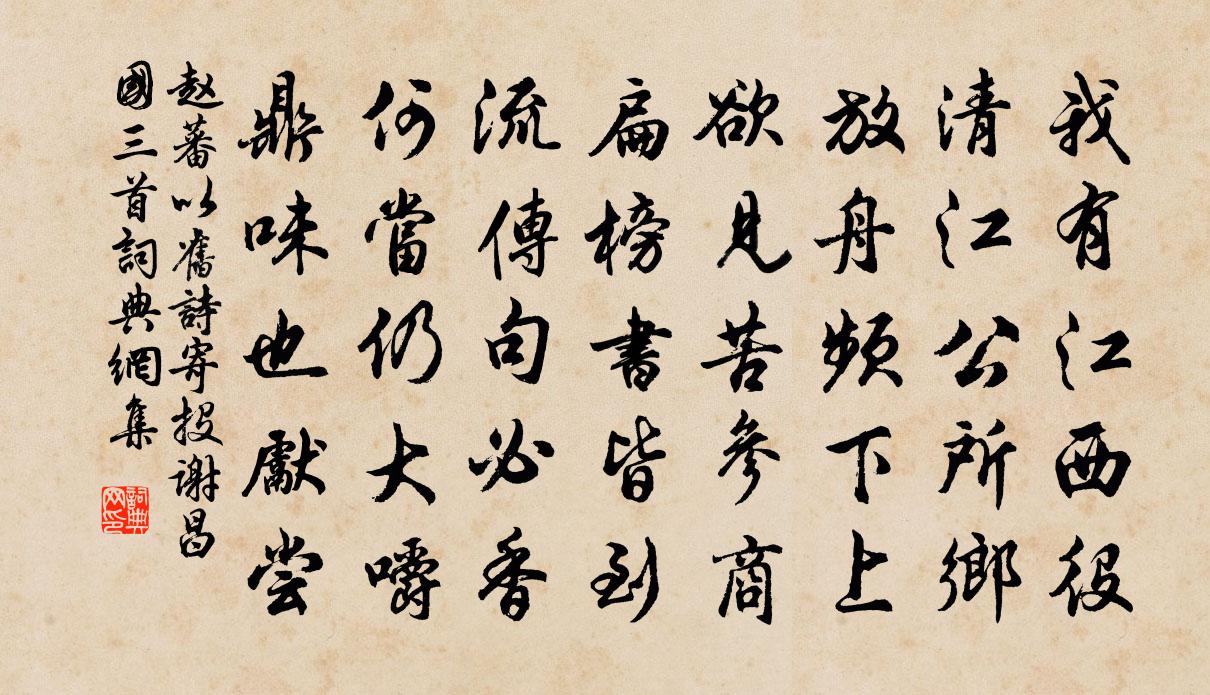 我有江西役
清江公所鄉
放舟頻下上
欲見苦參商
扁榜書皆到
流傳句必香
何當仍大嚼
鼎味也獻尝
赵蕃以舊詩寄投謝昌
國三首詞典網集
詞典
网印